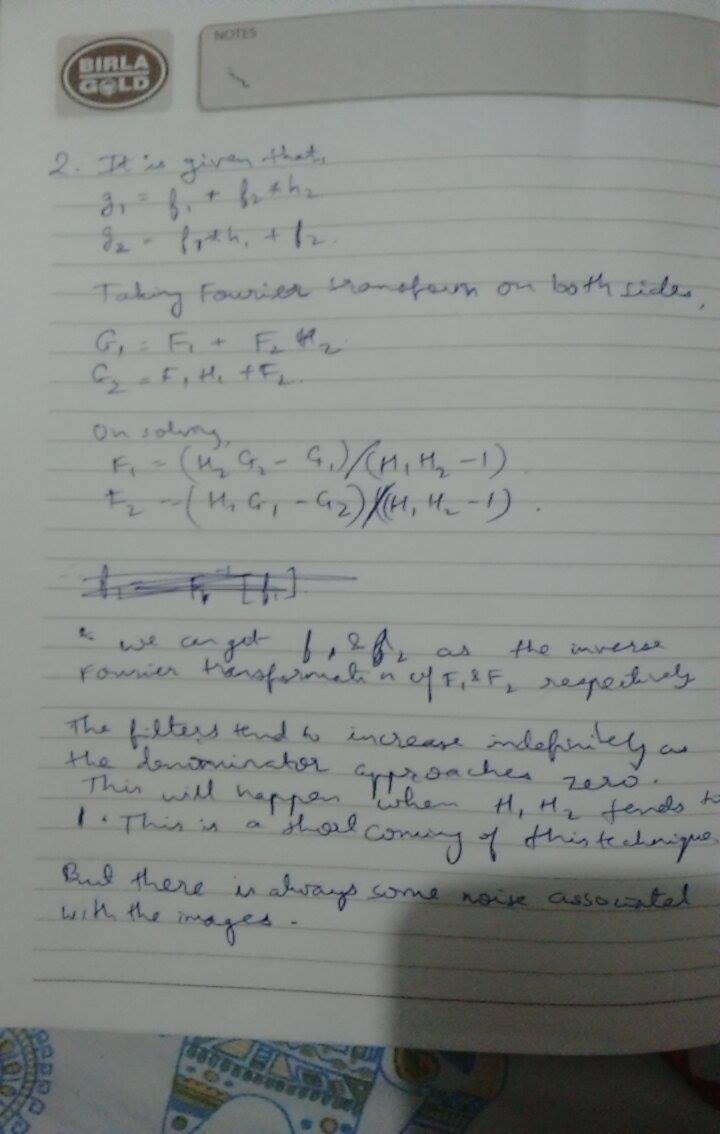 BIRLA
GOLD
NOTES
2. It is given that,
g₁ = f₁ + f₂*h₂
g₂ = f₁*h₁ + f₂.
Taking Fourier transform on both sides,
G₁ = F₁ + F₂ H₂.
G₂ = F₁ H₁ + F₂.
On solving,
F₁ = (H₂ G₂ - G₁)/(H₁ H₂ -1)
F₂ = (H₁ G₁ - G₂)/(H₁ H₂ -1).
we can get f₁ & f₂ as the inverse
Fourier transformation of F₁ & F₂ respectively
The filters tend to increase indefinitely as
the denominator approaches zero.
This will happen when H₁ H₂ tends to
1. This is a short coming of this technique.
But there is always some noise associated
with the images.